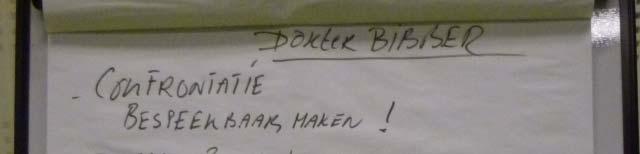 Dokter BIBBER
- CONFRONTATIE
BESPEEKBAAR MAKEN !